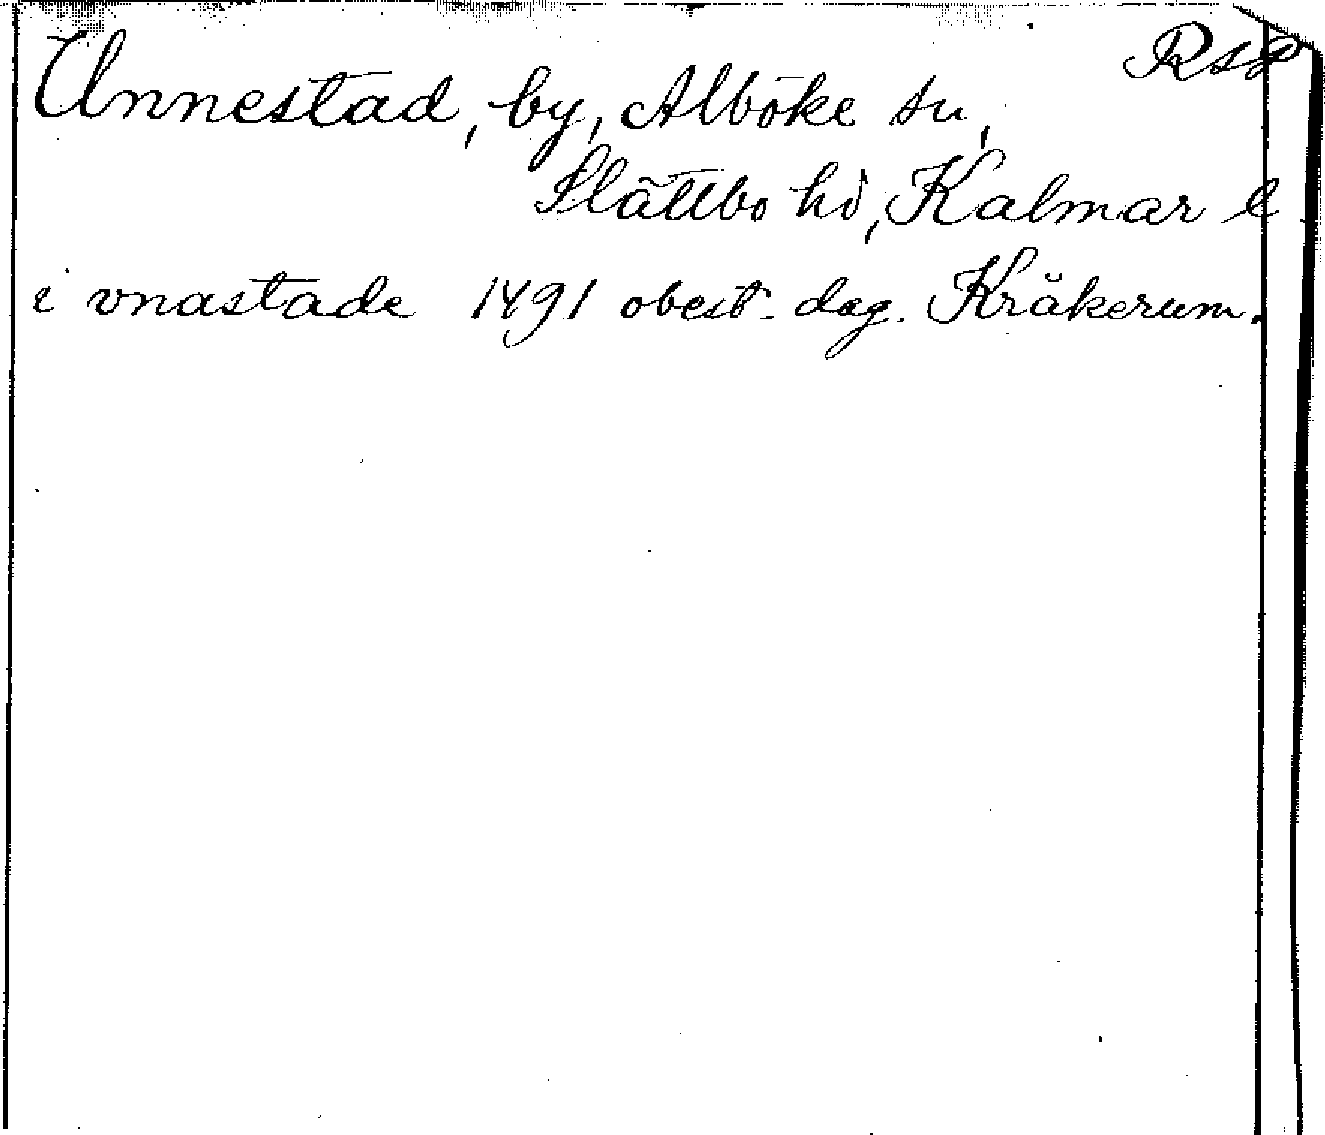 RAP
Unnestad, by, Alböke sn,
Slättbo hd, Kalmar l
i vnastade 1491 obest. dag. Kräkerum.